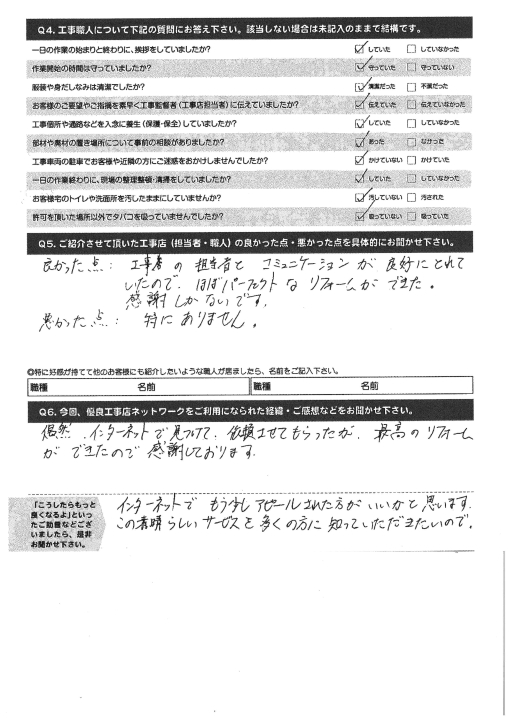 Q4. 工事職人について下記の質問にお答え下さい。該当しない場合は未記入のままで結構です。
一日の作業の始まりと終わりに、挨拶をしていましたか? ☑していた □していなかった
作業開始の時間は守っていましたか? ☑守っていた □守っていない
服装や身だしなみは清潔でしたか? ☑清潔だった □不潔だった
お客様のご要望やご指摘を素早く工事監督者(工事店担当者)に伝えていましたか? ☑伝えていた □伝えていなかった
工事個所や通路などを入念に養生(保護・保全)していましたか? ☑していた □していなかった
部材や資材の置き場所について事前の相談がありましたか? ☑あった □なかった
工事車両の駐車でお客様や近隣の方にご迷惑をおかけしませんでしたか? ☑かけていない □かけていた
一日の作業終わりに、現場の整理整頓・清掃をしていましたか? ☑していた □していなかった
お客様宅のトイレや洗面所を汚したままにしていませんか? ☑汚していない □汚された
許可を頂いた場所以外でタバコを吸っていませんでしたか? ☑吸っていない □吸っていた
Q5. ご紹介させて頂いた工事店(担当者・職人)の良かった点・悪かった点を具体的にお聞かせ下さい。
良かった点: 工事者の担当者とコミュニケーションが良好にとれて
いたので、ほぼパーフェクトなリフォームができた。
感謝しかないです。
悪かった点: 特にありません。
◎特に好感が持てて他のお客様にも紹介したいような職人が居ましたら、名前をご記入下さい。
職種 名前 職種 名前
Q6. 今回、優良工事店ネットワークをご利用になられた経緯・ご感想などをお聞かせ下さい。
偶然、インターネットで見つけて、依頼させてもらったが、最高のリフォーム
ができたので感謝しております。
「こうしたらもっと
良くなるよ」といっ
たご助言などござ
いましたら、是非
お聞かせ下さい。
インターネットでもう少しアピールされた方がいいかと思います。
この素晴らしいサービスを多くの方に知っていただきたいので。